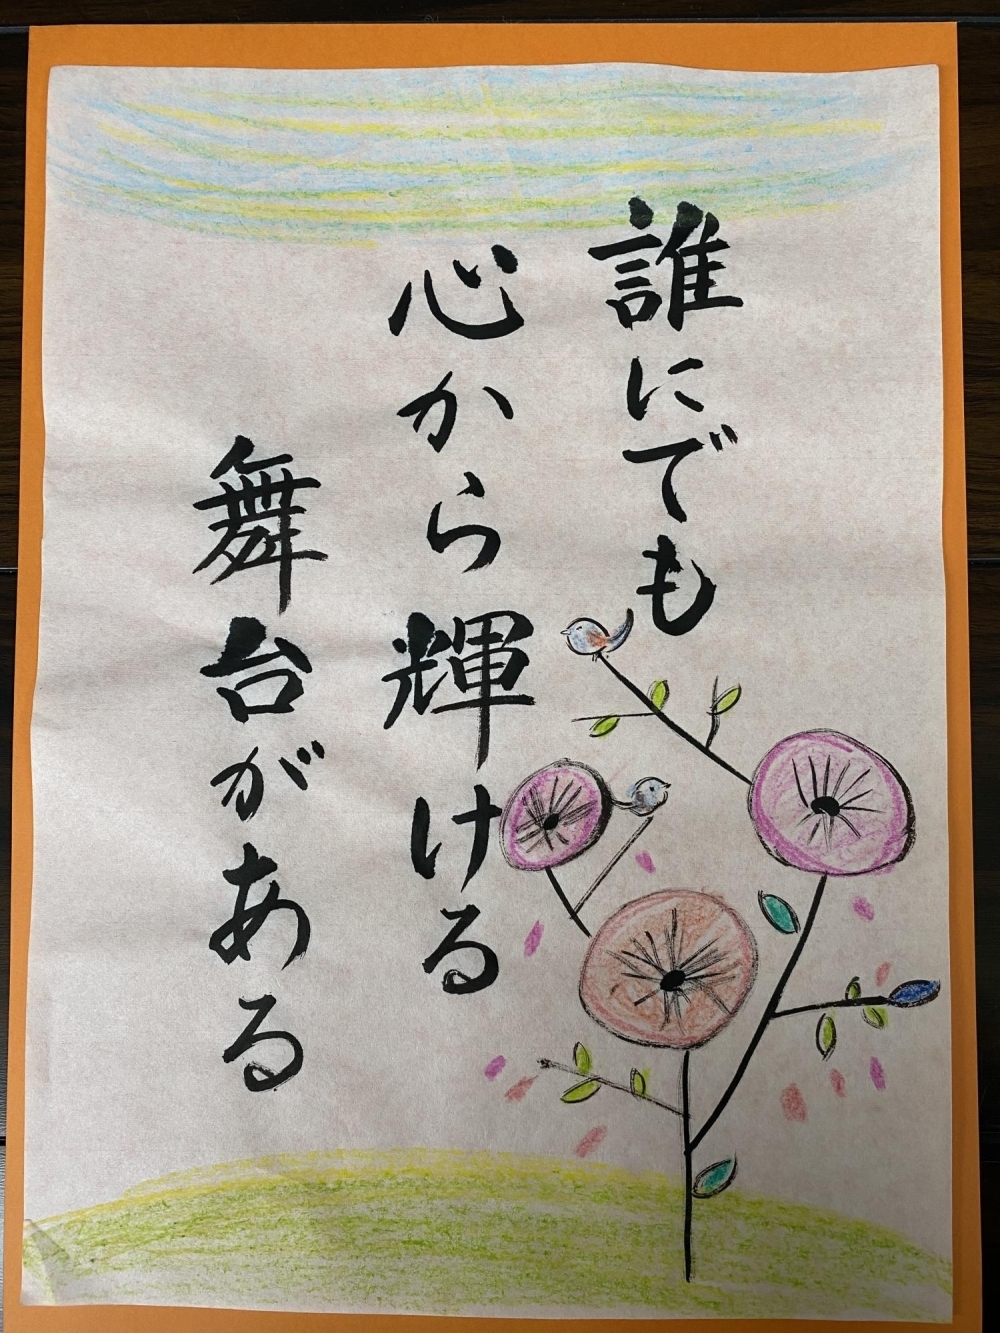 誰にでも
心から輝ける
舞台がある